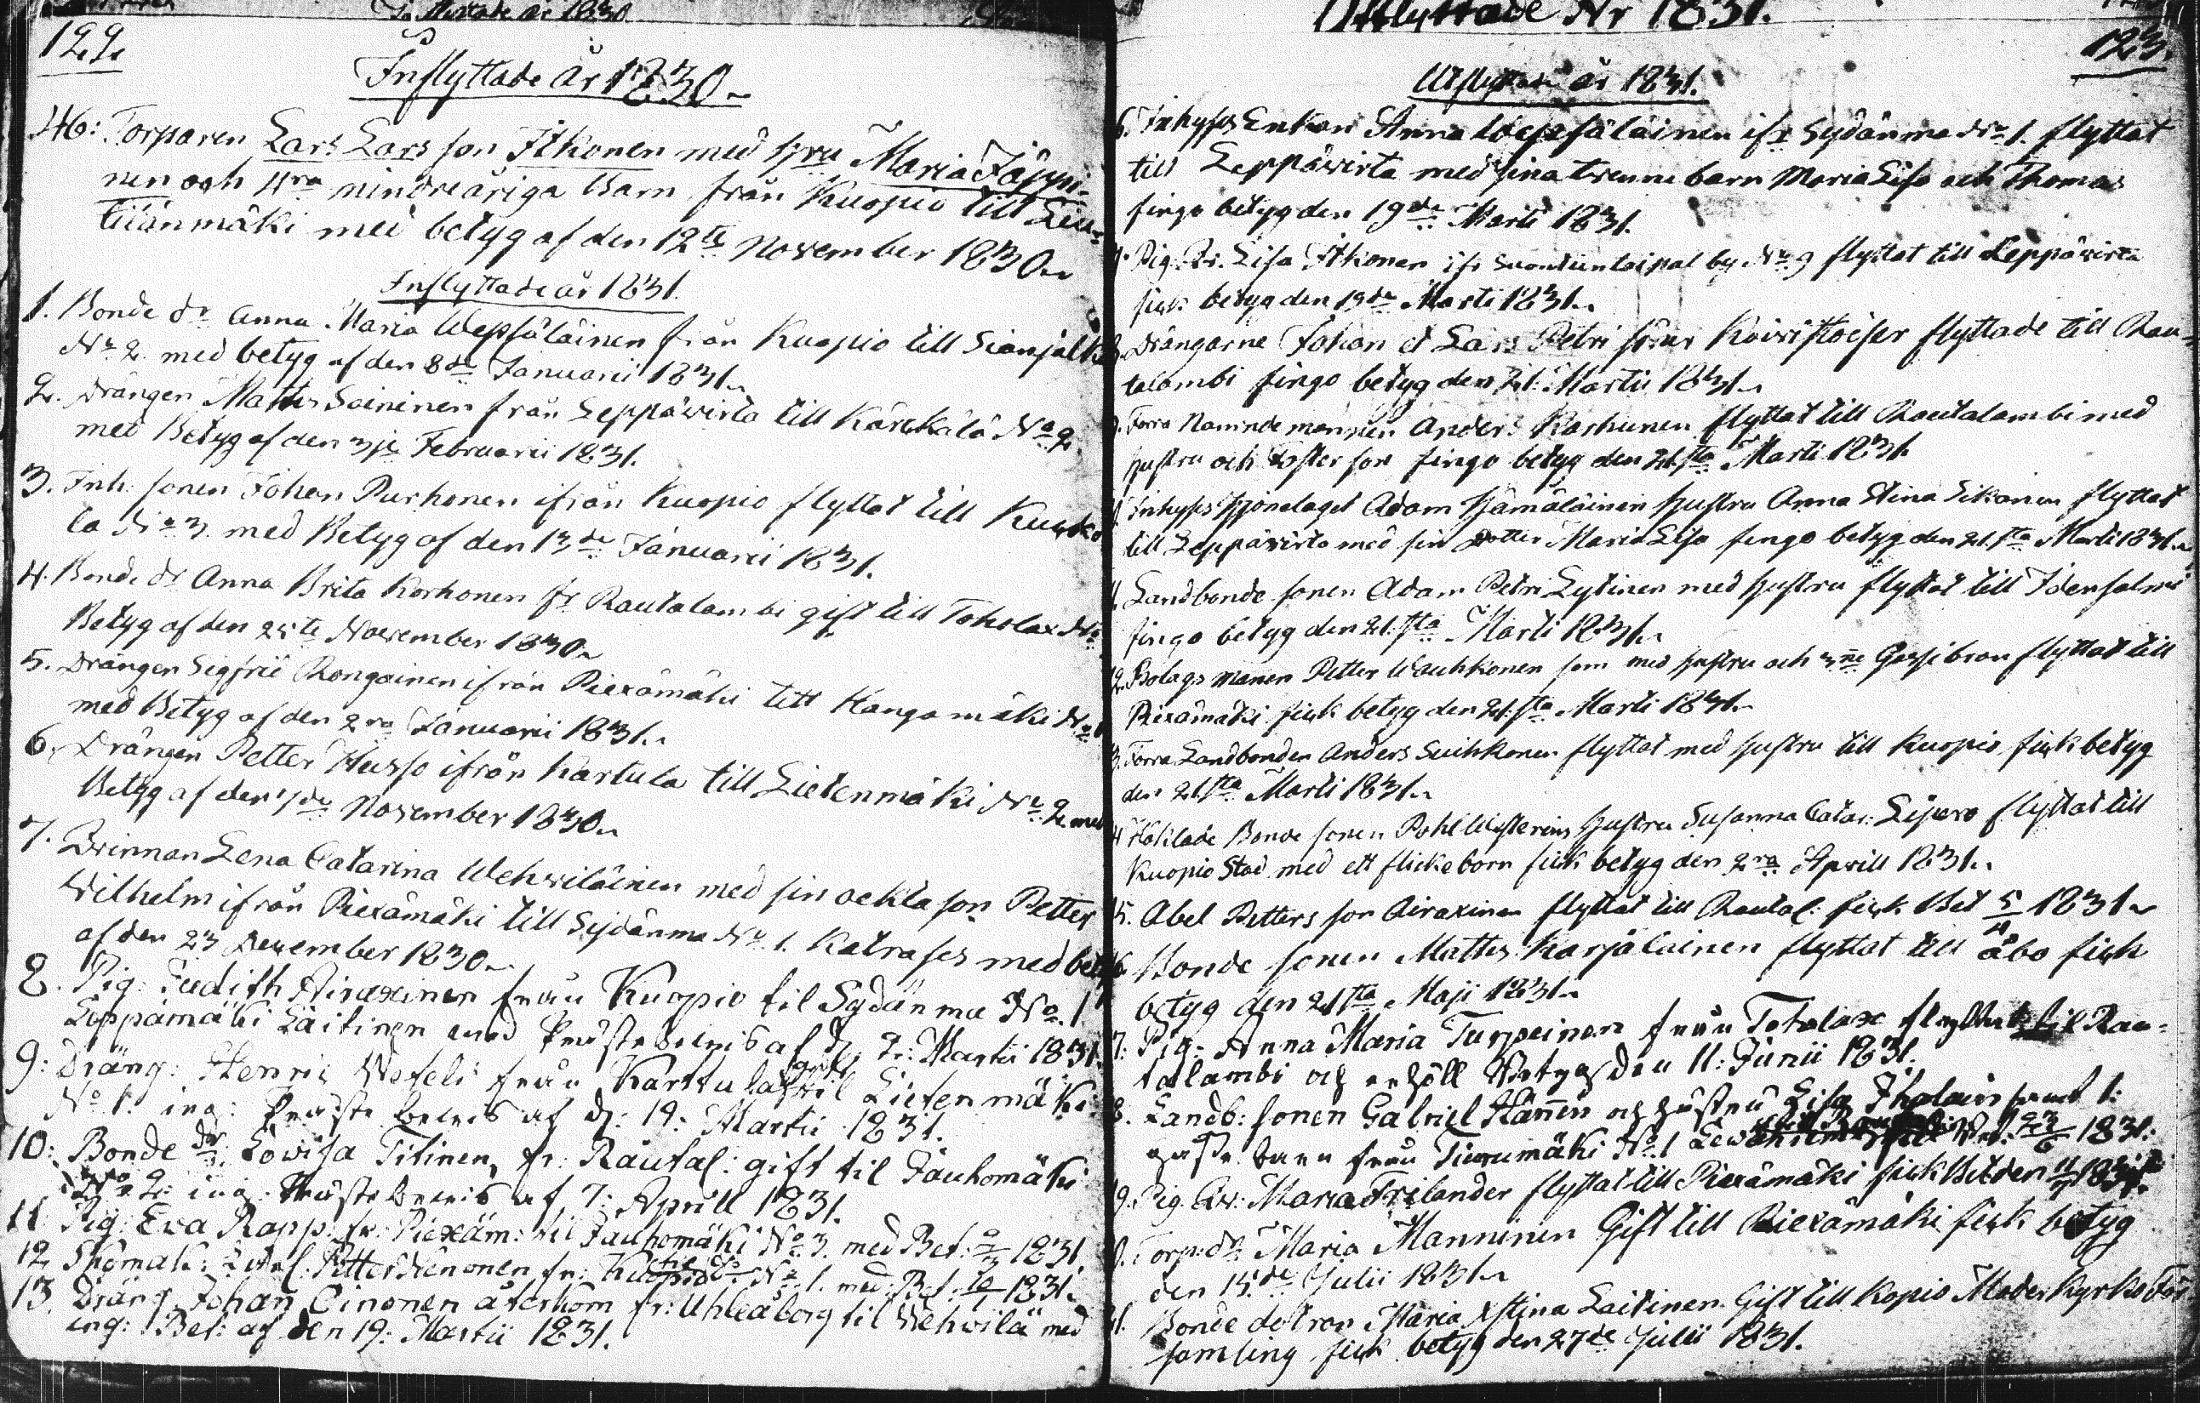 122.
Inflyttade år 1830
46: Torparen Lars Lars son Itkonen med hru Maria Jäppi-
nen och 4ra minderåriga barn från Kuopio till Lie-
tiänmäki med betyg af den 12te November 1830
Inflyttade år 1831.
1. Bonde dr Anna Maria Wepsäläinen från Kuopio till Sianjalk
No 2 med betyg af den 8de Januarii 1831
2. Drängen Matts Soininen från Leppäwirta till Kärkkälä No 2
med Betyg af den 3je Februarii 1831.
3. Inh: sonen Johan Purhonen ifrån Kuopio flyttat till
la No 3 med Betyg af den 13de Januarii 1831.
4. Bonde dr Anna Brita Korhonen fr Rautalambi gift till Toholax No
Betyg af den 25te November 1830
5. Drängen Sigfrid Rongainen ifrån Piexämäki till Hangamäki No 1
med Betyg af den 2ra Januarii 1831.
6. Drängen Petter Husso ifrån Kartula till Lietenmäki No 2 med
Betyg af den 7de November 1830
7. Qvinnan Lena Catarina Wehwiläinen med sin oekta son Petter
Wilhelm ifrån Piexämäki till Sydänma No 1. med bet
af den 23 December 1830
8. Pig: Judith Airaxinen från Kuopio til Sydänma No 1
Leppämäki Laitinen med Prestebewis af d: 2: Martii 1831.
9: Dräng: Henric Wefeli från Karttula gift til Lietenmäki
No 1. ing: Preste bewis af d: 19: Martii 1831.
10: Bonde dr: Lowisa Titinen, fr: Rautal: gift til Jauhomäki
No 2: ing: Prestebewis af 7: Aprill 1831.
11 Pig: Eva Rapp fr: Piexäm: til Jauhomäki No 3 med Bet: 1831.
12 Skomak: Petter Nenonen fr: Kuopio No 1. med Bet: 1831.
13. Dräng Johan Oinonen återkom fr: Uhleåborg til Wehwilä med
ing: Bet: af den 19: Martii 1831.
Utflyttade År 1831.
123.
Utflyttade år 1831.
6. Inhyses Enkan Anna Wepsäläinen ifr Sydänma No 1. flyttat
till Leppäwirta med sina trenne barn Maria Lisa och Thomas
fingo betyg den 19de Marti 1831.
7. Pig: Lisa Itkonen ifr Suontientaipal by No 9 flyttat till Leppäwirta
fick betyg den 19de Marti 1831.
8. Drängarne Johan et Lars Petri söner Koiwistoiser flyttade till Rau-
talambi fingo betyg den 21: Martii 1831.
9. Förra Nämndemannen Anders Karhunen flyttat till Rautalambi med
hustru och foster son fingo betyg den 21sta Marti 1831
Inhyses Hjonelaget Adam Hämäläinen hustru Anna Stina Sikanen flyttat
till Leppäwirta med sin Dotter Maria Lisa fingo betyg den 21sta Marti 1831.
Landbonde sonen Adam Petri Lytinen med hustru flyttat till Idensalmi
fingo betyg den 21sta Marti 1831.
12. Bolags manen Petter Wauhkonen som med hustru och 3ne flyttat till
Piexämäki fick betyg den 21sta Marti 1831.
13. Förra Landbonden Anders Suihkonen flyttat med hustru till Kuopio fick betyg
den 21sta Marti 1831.
14 Bonde sonen Pohl Westerius hustru Susanna Catar: flyttat till
Kuopio Stad med ett flicke barn fick betyg den 2ra Aprill 1831.
15. Abel Petters son Airaxinen flyttat till Rautal: fick Bet 5/4 1831
16 Bonde sonen Matts Karjalainen flyttat till åbo fick
betyg den 21sta Maji 1831.
17: Pig: Anna Maria Turpeinen från Toholax flyttat til Rau-
talambi och erhöll Betyg den 11: Junii 1831.
18. Landb: sonen Gabriel Hänen och hustru Lisa Ihalain samt 1:
barn från Tiusumäki No 1 1831.
19. Pig: Maria Frilander flyttat till Piexämäki fick Bet den 1831.
Torp: dr Maria Manninen Gift till Piexämäki fick betyg
den 15de Julii 1831.
21. Bonde dottron Maria Xstina Laitinen Gift till Kopio Moder Kyrko För
samling fick betyg den 27de Julii 1831.